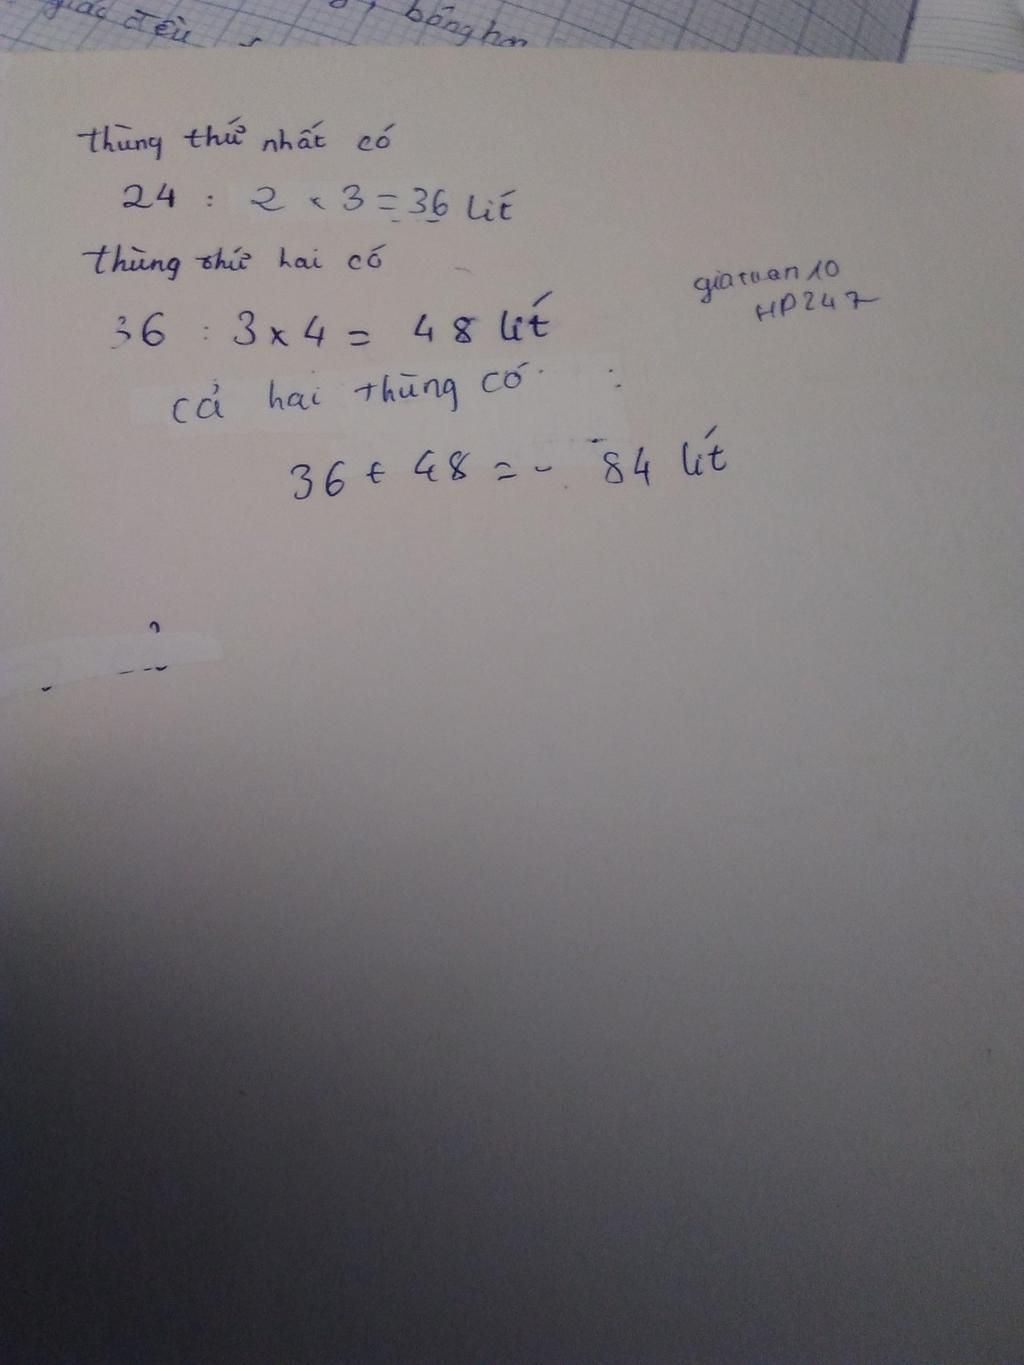 giác đều
bông hoa
thùng thứ nhất có
24 : 2 x 3 = 36 lít
thùng thứ hai có
36 : 3 x 4 = 48 lít
giatuan10
HP247
cả hai thùng có :
36 + 48 = 84 lít